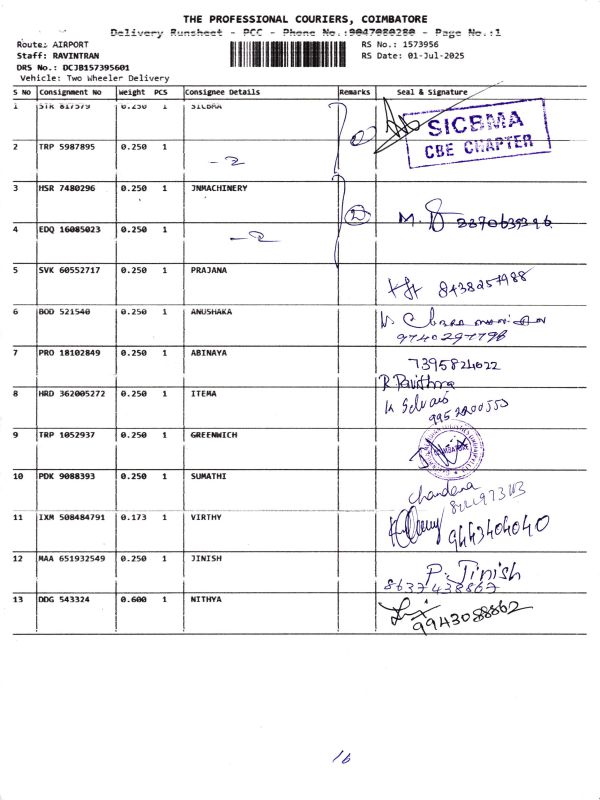 THE PROFESSIONAL COURIERS, COIMBATORE
Delivery Runsheet - PCC - Phone No.:9047080280 - Page No.:1
Route: AIRPORT RS No.: 1573956
Staff: RAVINTRAN RS Date: 01-Jul-2025
DRS No.: DCJB157395601
Vehicle: Two Wheeler Delivery
S No Consignment No Weight PCS Consignee Details Remarks Seal & Signature
1 STR 817579 0.250 1 SICBRA
SICBMA
CBE CHAPTER
2 TRP 5987895 0.250 1
3 HSR 7480296 0.250 1 JNMACHINERY
4 EDQ 16085023 0.250 1
5 SVK 60552717 0.250 1 PRAJANA
8438257988
6 BOD 521540 0.250 1 ANUSHAKA
9740297798
7 PRO 18102849 0.250 1 ABINAYA
7395824022
R Pavithra
8 HRD 362005272 0.250 1 ITEMA
K Selvaraj
9952200553
9 TRP 1052937 0.250 1 GREENWICH
COIMBATORE
10 PDK 9088393 0.250 1 SUMATHI
Chandana
11 IXM 508484791 0.173 1 VIRTHY
9443404040
12 MAA 651932549 0.250 1 JINISH
P. Jinish
8637438867
13 DDG 543324 0.600 1 NITHYA
9943088862
16